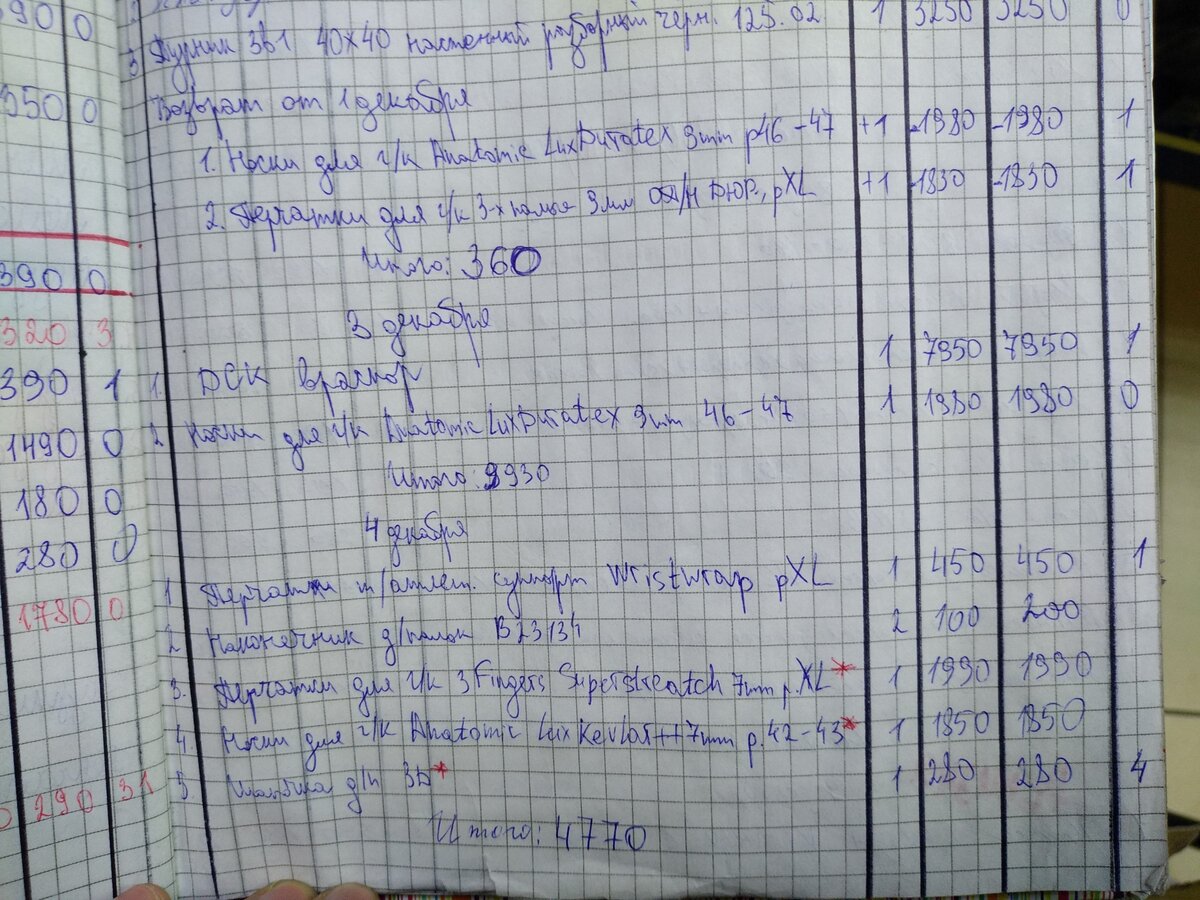 900 0
3 Турник 3в1 40х40 настенный разборный черн. 125.02 1 3250 3250 0
350 0
Возврат от 1 декабря
1. Носки для г/к Anatomic LuxDuratex 9mm р46-47 +1 -1980 -1980 1
2. Перчатки для г/к 3-х палые 9мм DЮР, рXL +1 -1830 -1830 1
Итого: 360
390 0
3 декабря
320 3
390 1
1. ДСК враспор 1 7950 7950 1
2 Носки для г/к Anatomic LuxDuratex 9mm 46-47 1 1980 1980 0
1490 0
Итого: 9930
180 0
4 декабря
280 0
1 Перчатки т/атлет. суппорт wristwrap рXL 1 450 450 1
1780 0
2 Наконечник д/палок B23134 2 100 200
3. Перчатки для г/к 3Fingers Superstreatch 7mm р. XL* 1 1990 1990
4 Носки для г/к Anatomic LuxKevlar++7mm р.42-43* 1 1850 1850
5 Шапочка д/п 3D* 1 280 280 4
290 31
Итого: 4770